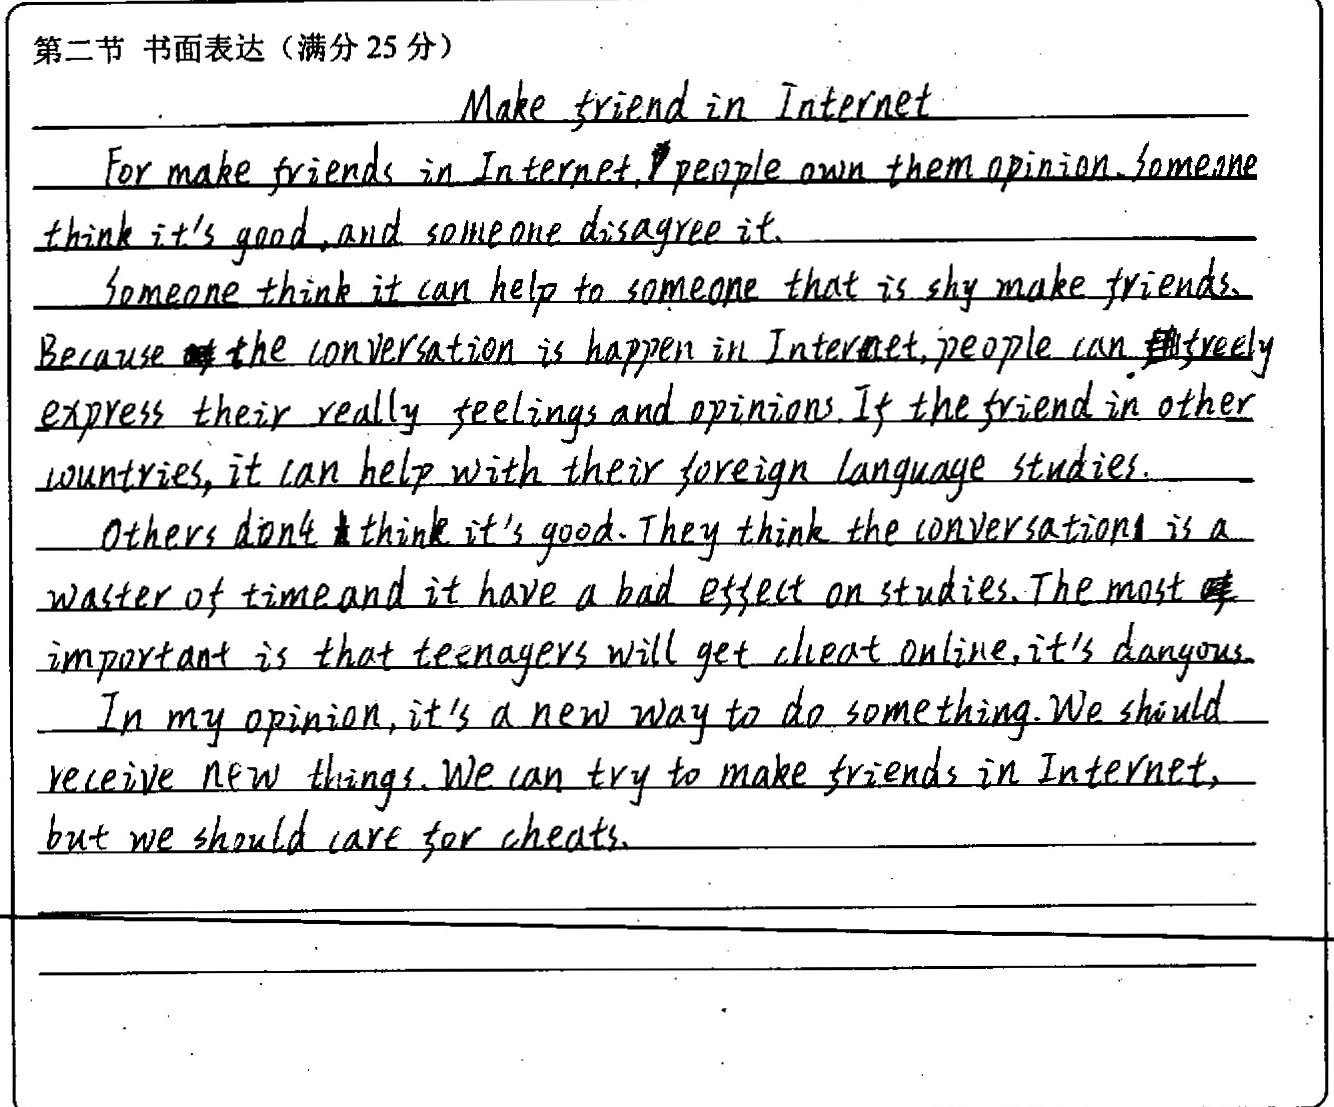 第二节 书面表达（满分 25 分）
Make friend in Internet
For make friends in Internet, people own them opinion. Someone
think it's good, and someone disagree it.
Someone think it can help to someone that is shy make friends.
Because the conversation is happen in Internet, people can freely
express their really feelings and opinions. If the friend in other
countries, it can help with their foreign language studies.
Others don't think it's good. They think the conversation is a
waster of time and it have a bad effect on studies. The most
important is that teenagers will get cheat online, it's dangous.
In my opinion, it's a new way to do something. We should
receive new things. We can try to make friends in Internet,
but we should care for cheats.